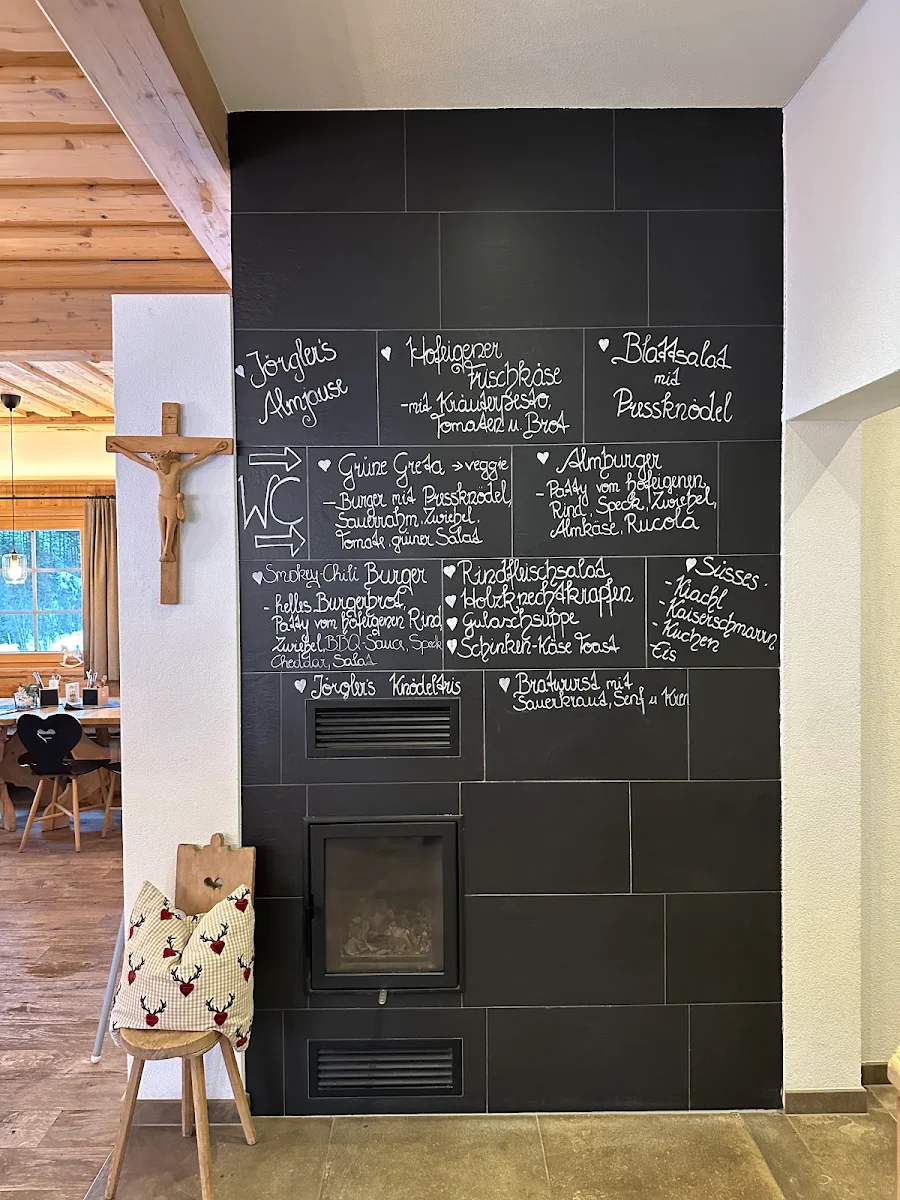 Jörgler's
Almjause
Hofeigener
Frischkäse
-mit Kräuterpesto,
Tomaten u. Brot
Blattsalat
mit
Pressknödel
WC
Grüne Greta → veggie
- Burger mit Pressknödel,
Sauerrahm, Zwiebel,
Tomate, grüner Salat
Almburger
- Patty vom hofeigenen,
Rind, Speck, Zwiebel,
Almkäse, Rucola
Smokey-Chili Burger
- helles Burgerbrot,
Patty vom hofeigenen Rind
Zwiebel, BBQ-Sauce, Speck
Cheddar, Salat
Rindfleischsalat
Holzknechtkrapfen
Gulaschsuppe
Schinken-Käse Toast
Süsses
- Kiachl
- Kaiserschmarrn
- Kuchen
Eis
Jörgler's Knödeltris
Bratwurst mit
Sauerkraut, Senf u Kren